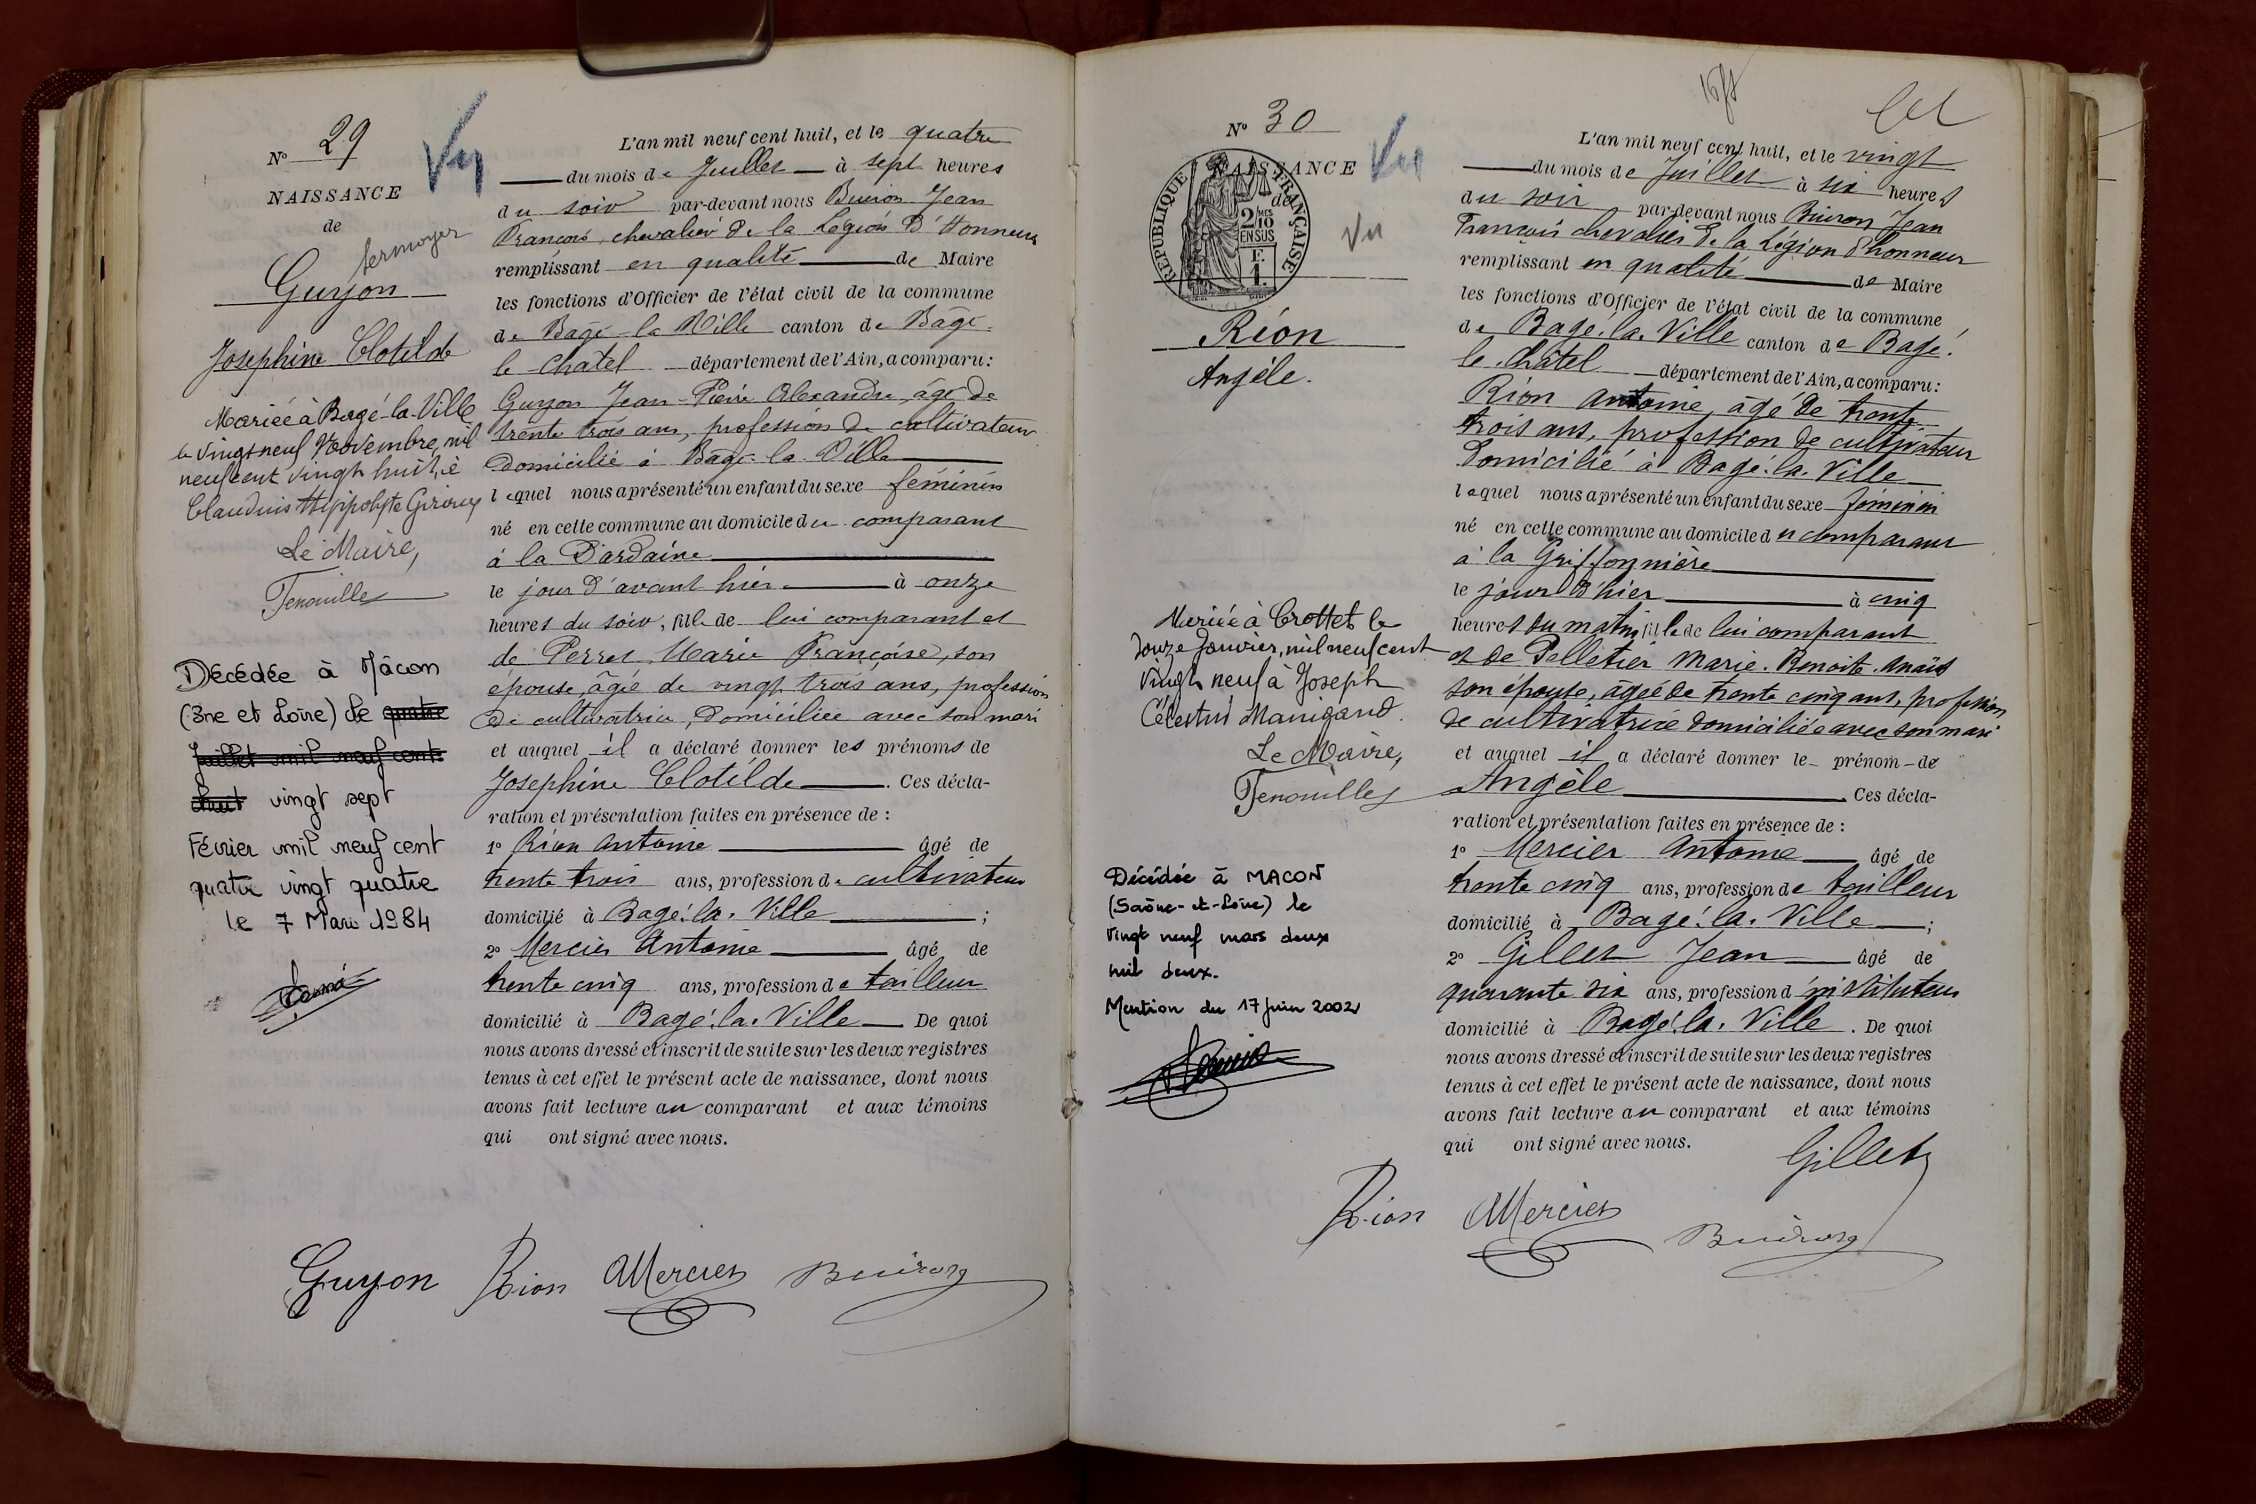 N° 29
Vu
NAISSANCE
de
Sermoyer
Guyon
Josephine Clotilde
Mariée à Bagé-la-Ville
le vingt neuf Novembre mil
neuf cent vingt huit, à
Claudius Hippolyte Giroux
Le Maire,
Fenouillet
Décédée à Mâcon
(Sne et Loire) le quatre
Juillet mil neuf cent
huit vingt sept
Février mil neuf cent
quatre vingt quatre
le 7 Mars 1984
L'an mil neuf cent huit, et le quatre
du mois de Juillet à sept heures
du soir par-devant nous Buiron Jean
François, chevalier de la Légion d'Honneur
remplissant en qualité de Maire
les fonctions d'Officier de l'état civil de la commune
de Bagé-la Ville canton de Bâgé-
le Chatel département de l'Ain, a comparu:
Guyon Jean-Pierre Alexandre, âgé de
trente trois ans, profession de cultivateur
domicilié à Bâgé-la Ville
lequel nous a présenté un enfant du sexe féminin
né en cette commune au domicile du comparant
à la Dardaine
le jour d'avant hier à onze
heures du soir, fille de lui comparant et
de Perret Marie Françoise, son
épouse, âgée de vingt trois ans, profession
de cultivatrice, domiciliée avec son mari
et auquel il a déclaré donner les prénoms de
Josephine Clotilde. Ces décla-
ration et présentation faites en présence de :
1° Rion Antoine âgé de
trente trois ans, profession de cultivateur
domicilié à Bagé-la-Ville ;
2° Mercier Antoine âgé de
trente cinq ans, profession de tailleur
domicilié à Bagé-la-Ville De quoi
nous avons dressé et inscrit de suite sur les deux registres
tenus à cet effet le présent acte de naissance, dont nous
avons fait lecture au comparant et aux témoins
qui ont signé avec nous.
Guyon Rion AMercier Buiron
N° 30
Vu
NAISSANCE
de
RÉPUBLIQUE FRANÇAISE
2/10 MES
EN SUS
F.
1.
Vu
Rion
Angèle.
Mariée à Crottet le
douze Janvier, mil neuf cent
vingt neuf à Joseph
Célestin Manigand.
Le Maire,
Fenouillet
Décédée à MACON
(Saône-et-Loire) le
vingt neuf mars deux
mil deux.
Mention du 17 Juin 2002
L'an mil neuf cent huit, et le vingt
du mois de Juillet à six heures
du soir par-devant nous Buiron Jean
François chevalier de la Légion d'honneur
remplissant en qualité de Maire
les fonctions d'Officier de l'état civil de la commune
de Bagé-la-Ville canton de Bagé-
le-Châtel département de l'Ain, a comparu:
Rion Antoine, âgé de trente
trois ans, profession de cultivateur
domicilié à Bagé-la-Ville
lequel nous a présenté un enfant du sexe féminin
né en cette commune au domicile du comparant
à la Griffonnière
le jour d'hier à cinq
heures du matin fille de lui comparant
et de Pelletier Marie-Benoite-Anaïs
son épouse, âgée de trente cinq ans, profession
de cultivatrice domiciliée avec son mari
et auquel il a déclaré donner le prénom de
Angèle. Ces décla-
ration et présentation faites en présence de :
1° Mercier Antoine âgé de
trente cinq ans, profession de tailleur
domicilié à Bagé-la-Ville ;
2° Gillet Jean âgé de
quarante six ans, profession d'instituteur
domicilié à Bagé-la-Ville. De quoi
nous avons dressé et inscrit de suite sur les deux registres
tenus à cet effet le présent acte de naissance, dont nous
avons fait lecture au comparant et aux témoins
qui ont signé avec nous.
Gillet
Rion AMercier Buiron